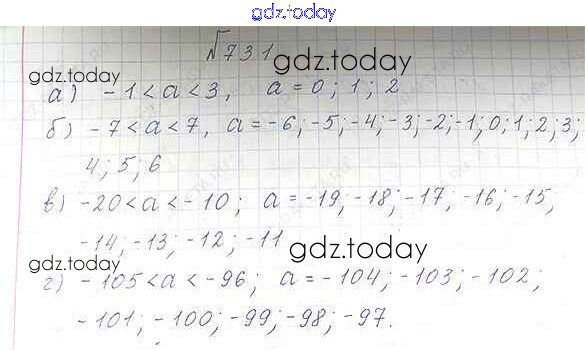 gdz.today
№731
gdz.today
gdz.today
а) -1 < a < 3, a = 0; 1; 2
б) -7 < a < 7, a = -6; -5; -4; -3; -2; -1; 0; 1; 2; 3;
4; 5; 6
в) -20 < a < -10; a = -19; -18; -17; -16; -15;
-14; -13; -12; -11
gdz.today
gdz.today
г) -105 < a < -96; a = -104; -103; -102;
-101; -100; -99; -98; -97.